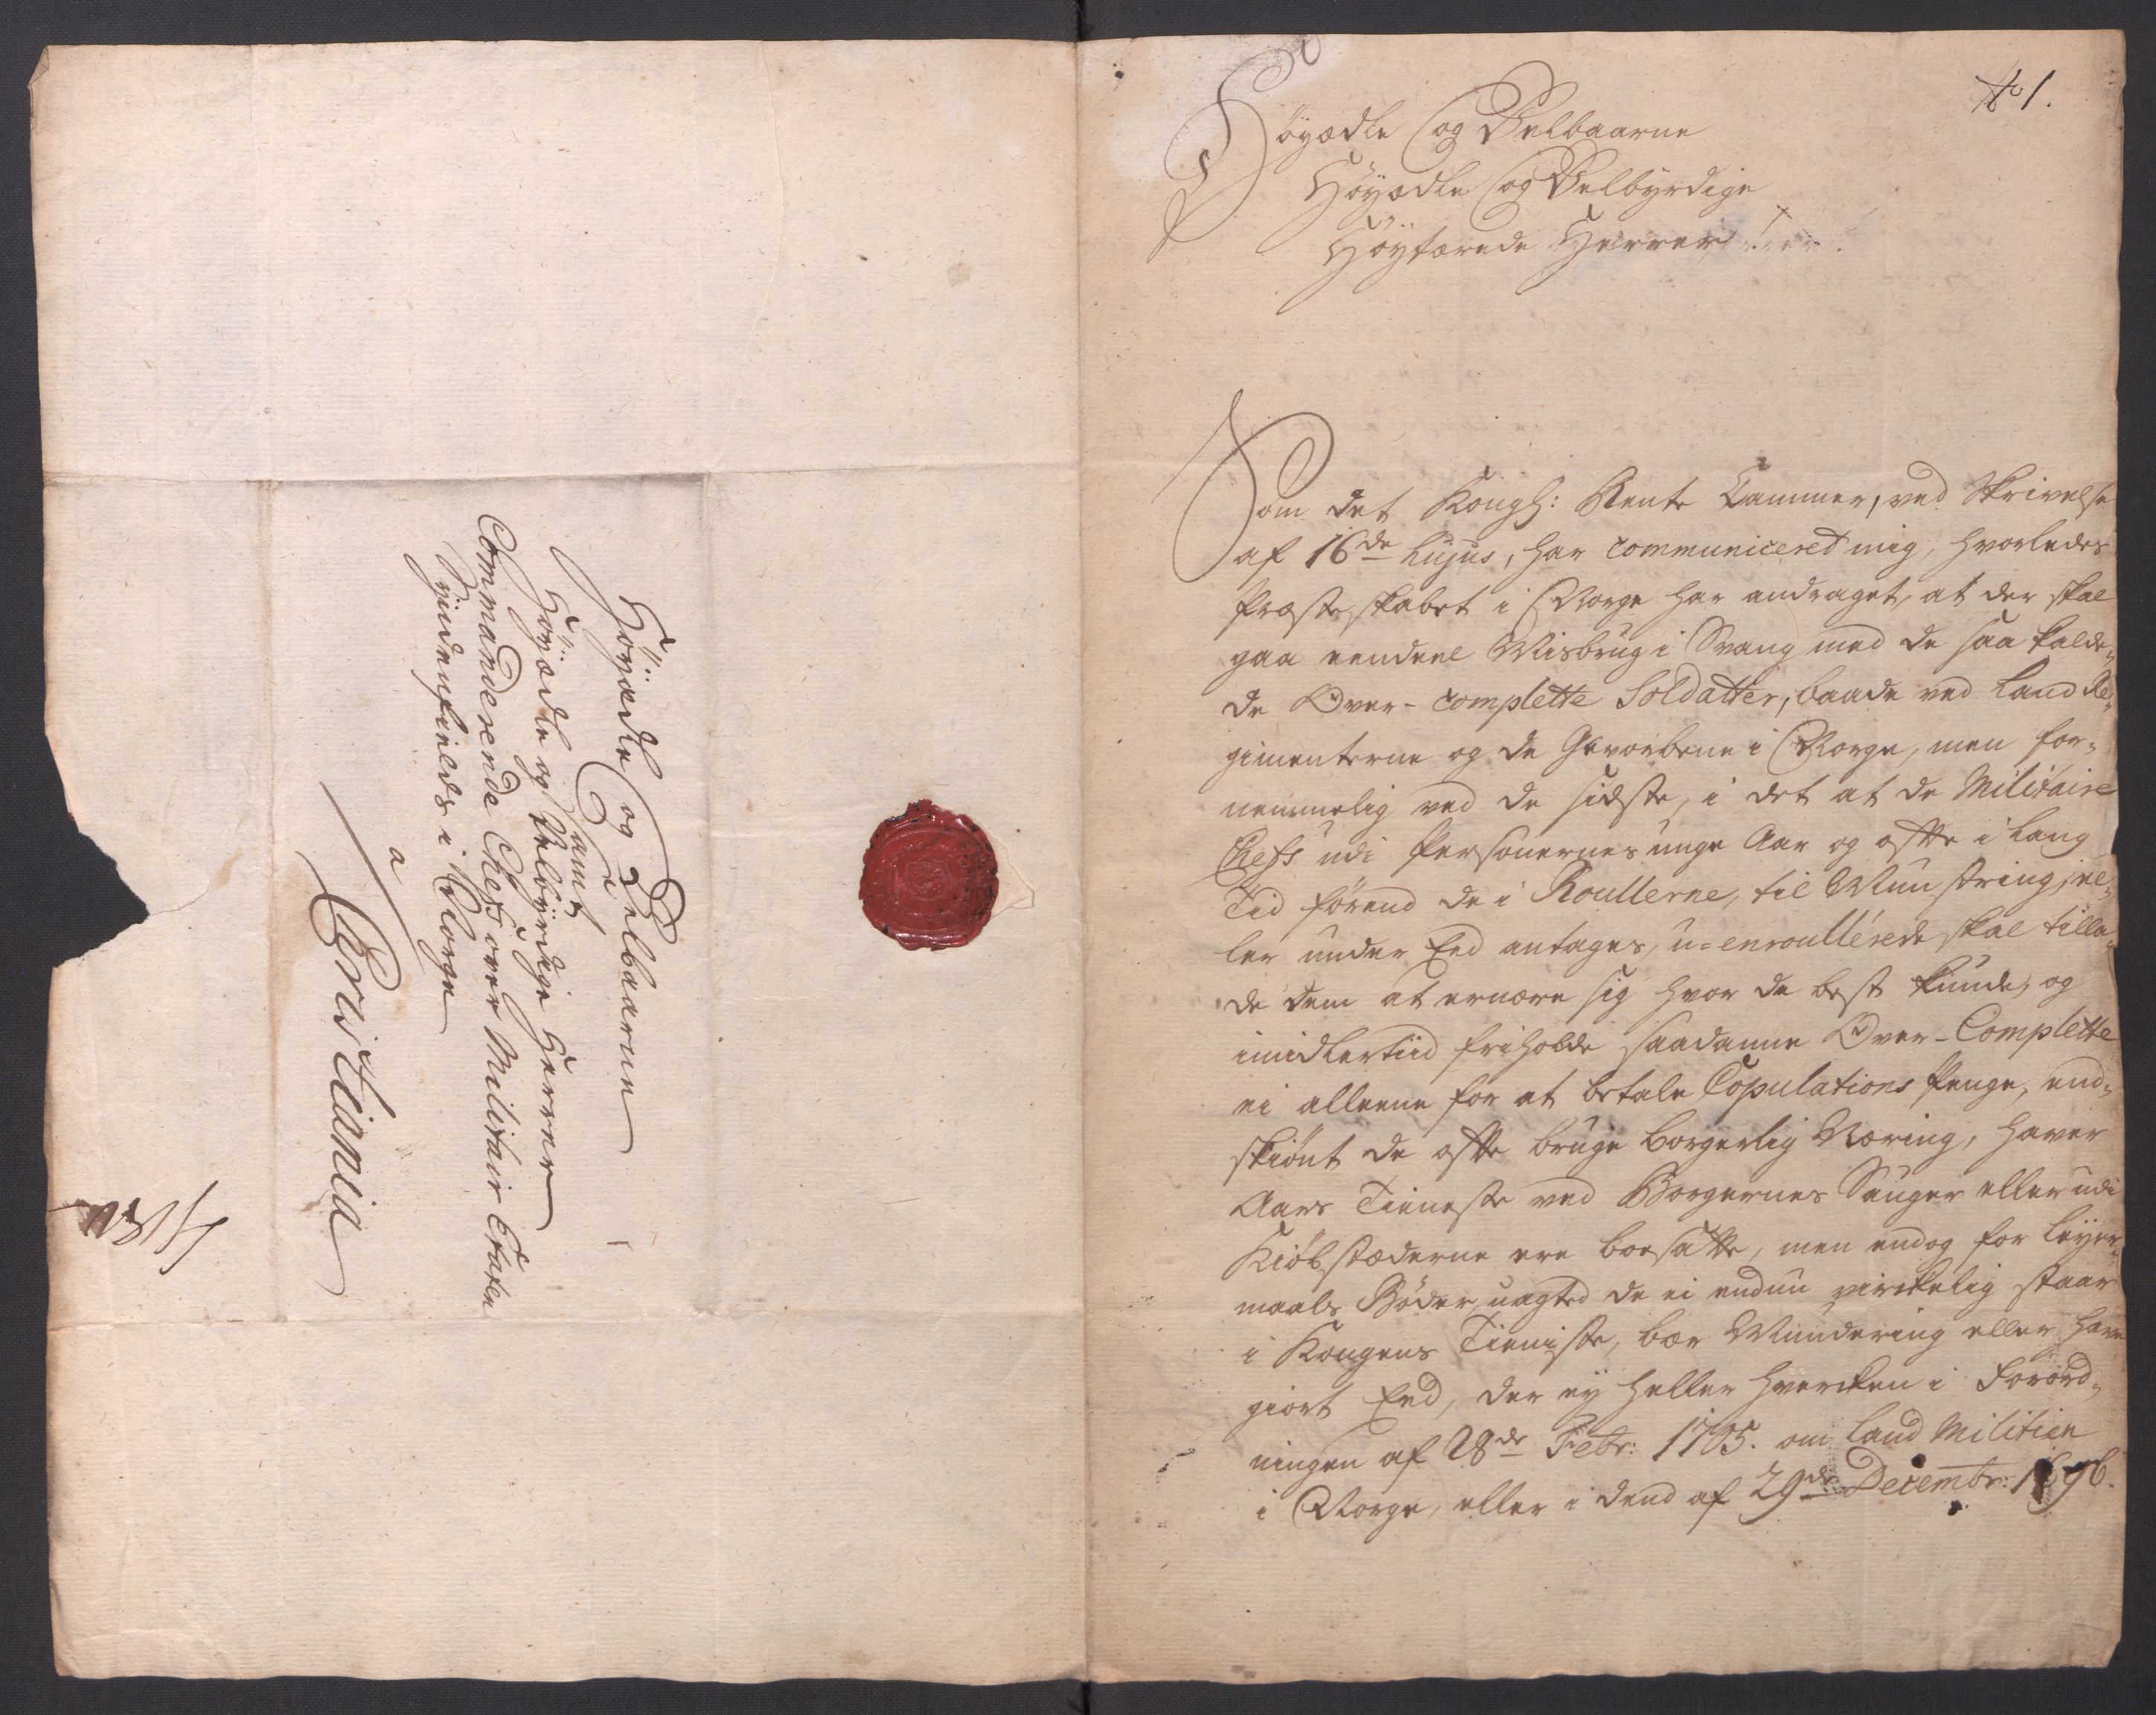 Höyædle og Velbaarne
samt
Höyædle og Velbyrdige Herrer
Commanderende Chefs over Militair Etaten
Syndenfields i Norge
a
Christiania
No 1.
Höyædle og Velbaarne
Höyædle og Velbyrdige
Höytærede Herrer
Som det Kongl: Rente Cammer, ved Skrivelse
af 16de hujus, har communiceret mig, hvorledes
Præsteskabet i Norge har andraget, at der skal
gaa eendeel Misbrug i Svang med de saa kalde-
de Over-complette Soldatter, baade ved Land Re-
gimenterne og de Gevorbene i Norge, men for-
nemmelig ved de sidste, i det at de Militaire
Chefs udi Personernes unge Aar og ofte i lang
Tid förend de i Roullerne, til Mynstring, el-
ler under Eed antages, u-enroullerede skal tilla-
de dem at ernære sig hvor de best kunde, og
imidlertiid friholde saadanne Over-Complette
ei alleene for at betale Copulations Penge, end-
skiönt de ofte bruge borgerlig Næring, haver
Aars Tieneste ved Borgernes Sauger eller udi
Kiöbstæderne ere boesatte, men endog for Leyer-
maals Böder, uagted de ei endnu virkelig staar
i Kongens Tieniste, bær Mundering eller have
giort Eed, der ey heller hverken i Forord-
ningen af 28de Febr: 1705. om Land Militien
i Norge, eller i dend af 29de Decembr: 1696.